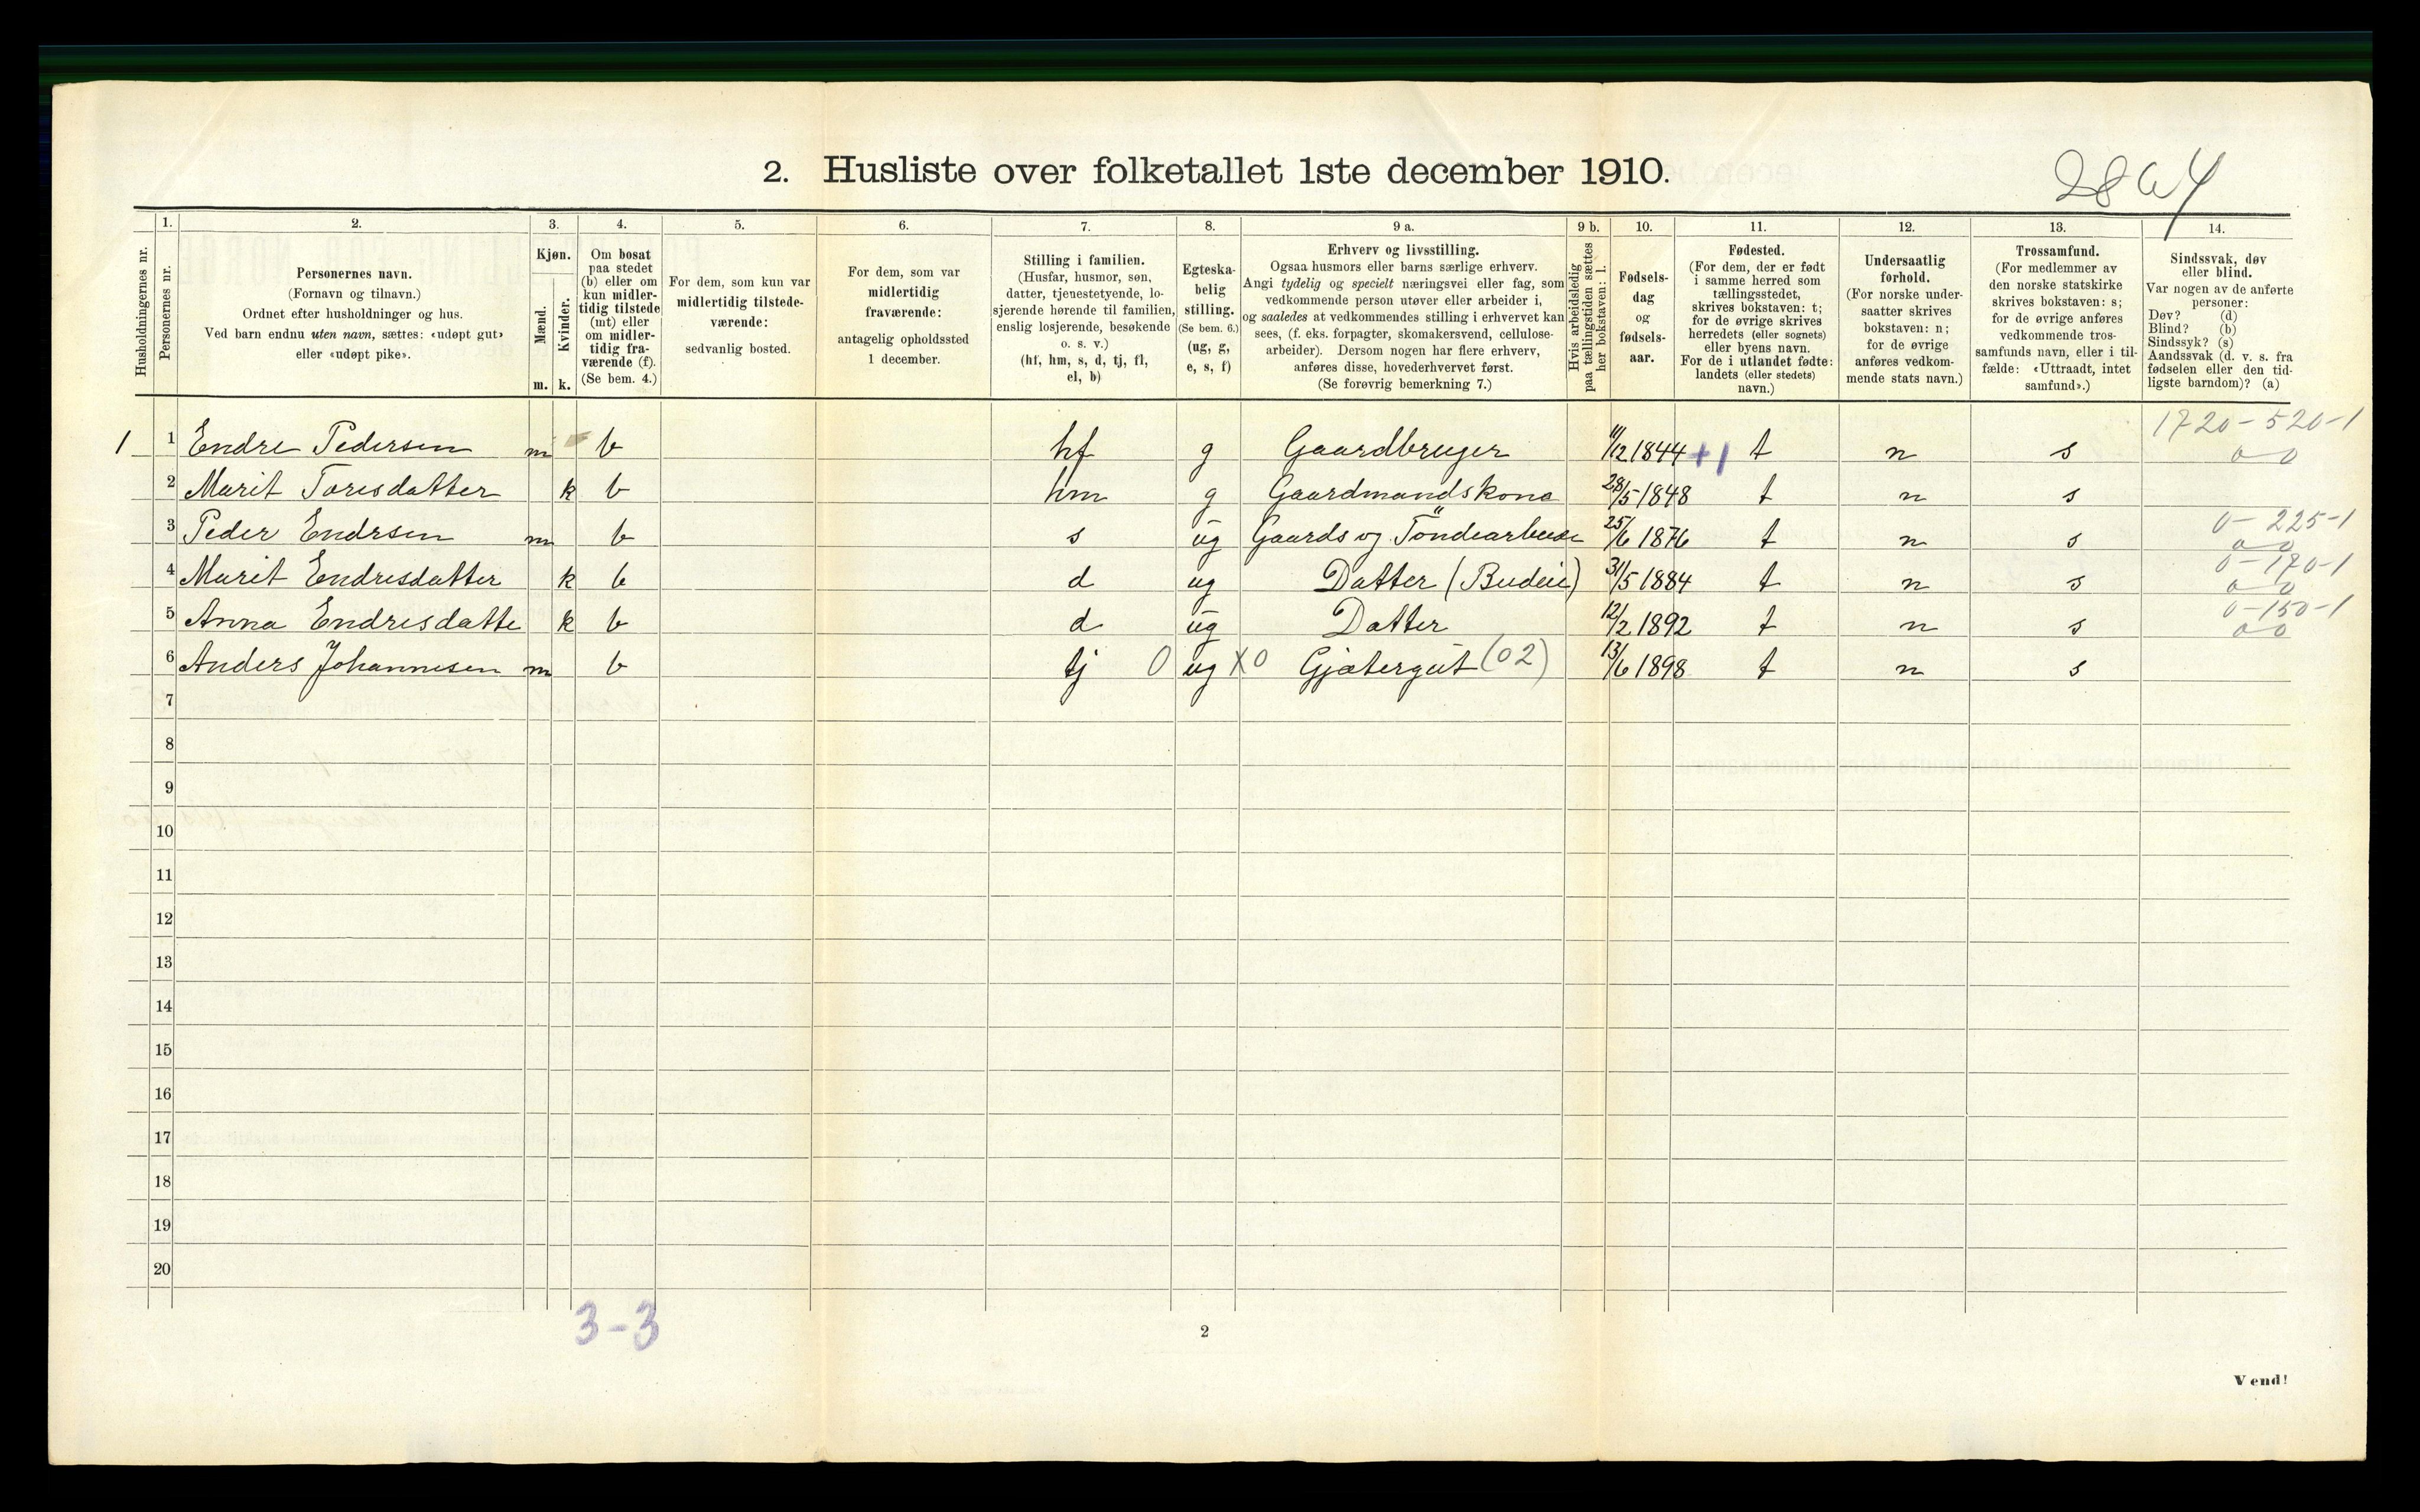 2. Husliste over folketallet 1ste december 1910.
Husholdningernes nr.
1.
Personernes nr.
2.
Personernes navn.
(Fornavn og tilnavn.)
Ordnet efter husholdninger og hus.
Ved barn endnu uten navn, sættes: «udøpt gut»
eller «udøpt pike».
3.
Kjøn.
Mænd.
m.
Kvinder.
k.
4.
Om bosat
paa stedet
(b) eller om
kun midler-
tidig tilstede
(mt) eller
om midler-
tidig fra-
værende (f).
(Se bem. 4.)
5.
For dem, som kun var
midlertidig tilstede-
værende:
sedvanlig bosted.
6.
For dem, som var
midlertidig
fraværende:
antagelig opholdssted
1 december.
7.
Stilling i familien.
(Husfar, husmor, søn,
datter, tjenestetyende, lo-
sjerende hørende til familien,
enslig losjerende, besøkende
o. s. v.)
(hf, hm, s, d, tj, fl,
el, b)
8.
Egteska-
belig
stilling.
(Se bem. 6.)
(ug, g,
e, s, f)
9 a.
Erhverv og livsstilling.
Ogsaa husmors eller barns særlige erhverv.
Angi tydelig og specielt næringsvei eller fag, som
vedkommende person utøver eller arbeider i,
og saaledes at vedkommendes stilling i erhvervet kan
sees, (f. eks. forpagter, skomakersvend, cellulose-
arbeider). Dersom nogen har flere erhverv,
anføres disse, hovederhvervet først.
(Se forøvrig bemerkning 7.)
9 b.
Hvis arbeidsledig
paa tællingstiden sættes
her bokstaven: l.
10.
Fødsels-
dag
og
fødsels-
aar.
11.
Fødested.
(For dem, der er født
i samme herred som
tællingsstedet,
skrives bokstaven: t;
for de øvrige skrives
herredets (eller sognets)
eller byens navn.
For de i utlandet fødte:
landets (eller stedets)
navn.)
12.
Undersaatlig
forhold.
(For norske under-
saatter skrives
bokstaven: n;
for de øvrige
anføres vedkom-
mende stats navn.)
13.
Trossamfund.
(For medlemmer av
den norske statskirke
skrives bokstaven: s;
for de øvrige anføres
vedkommende tros-
samfunds navn, eller i til-
fælde: «Uttraadt, intet
samfund».)
14.
Sindssvak, døv
eller blind.
Var nogen av de anførte
personer:
Døv? (d)
Blind? (b)
Sindssyk? (s)
Aandssvak (d. v. s. fra
fødselen eller den tid-
ligste barndom)? (a)
1720-520-1
1 1 Endre Pedersen m b hf g Gaardbruger 11/12 1844 +1 t n s 0-0
2 Marit Toresdatter k b hm g Gaardmandskone 28/5 1848 t n s
0-225-1
3 Peder Endrsen m b s ug Gaards og Töndearbeide 25/6 1876 t n s 0-0
0-170-1
4 Marit Endresdatter k b d ug Datter (Budeie) 31/5 1884 t n s 0-0
0-150-1
5 Anna Endresdatte k b d ug Datter 12/2 1892 t n s 0-0
6 Anders Johannesen m b tj 0 ug X0 Gjætergut (02) 13/6 1898 t n s
7
8
9
10
11
12
13
14
15
16
17
18
19
20
3-3
2
Vend!